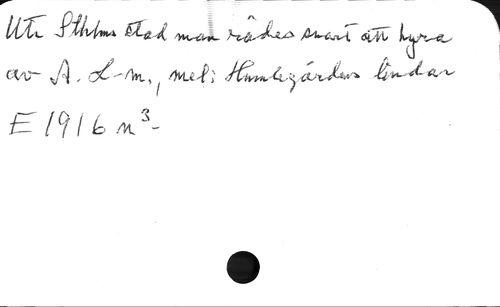 Ur Sthlms stad man rådes snart att hyra
av A. L-m., mel: Humlegårdens lindar
E 1916 n³-